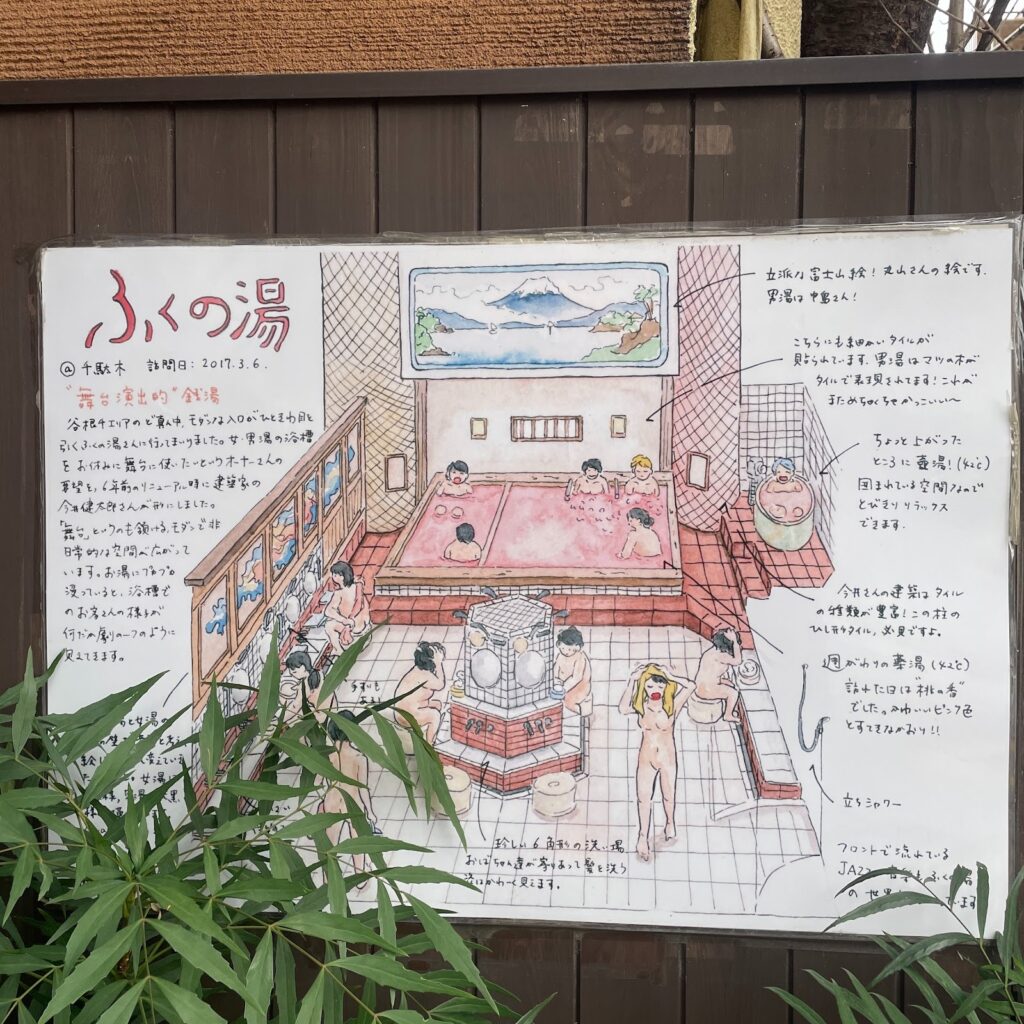 ふくの湯
@千駄木 訪問日:2017.3.6.
"舞台演出的"銭湯
谷根千エリアのど真ん中、モダンな入口がひときわ目を
引くふくの湯さんに行ってまいりました。女・男湯の浴槽
をお休みに舞台に使いたいというオーナーさんの
要望を、6年前のリニューアル時に建築家の
今井健太郎さんが形にしました。
「舞台」というのも頷ける、モダンで非
日常的な空間が広がって
います。お湯にプカプカ
浸っていると、浴槽で
のお客さんの様子が
何だか劇の一つのように
見えてきます。
立派な富士山絵!丸山さんの絵です。
男湯は中島さん!
こちらにも細かいタイルが
貼られています。男湯はマツの木が
タイルで表現されてます!これが
まためちゃくちゃかっこいい〜
ちょっと上がった
ところに壺湯!(42℃)
囲まれている空間なので
とびきりリラックス
できます。
今井さんの建築はタイル
の種類が豊富!この柱の
ひし形タイル、必見ですよ。
週がわりの薬湯(42℃)
訪れた日は"桃の香"
でした。かわいいピンク色
とすてきなかおり!!
立ちシャワー
フロントで流れている
JAZZ
の世界
珍しい6角形の洗い場
おばちゃん達が寄りあって髪を洗う
姿はかわいく見えます。